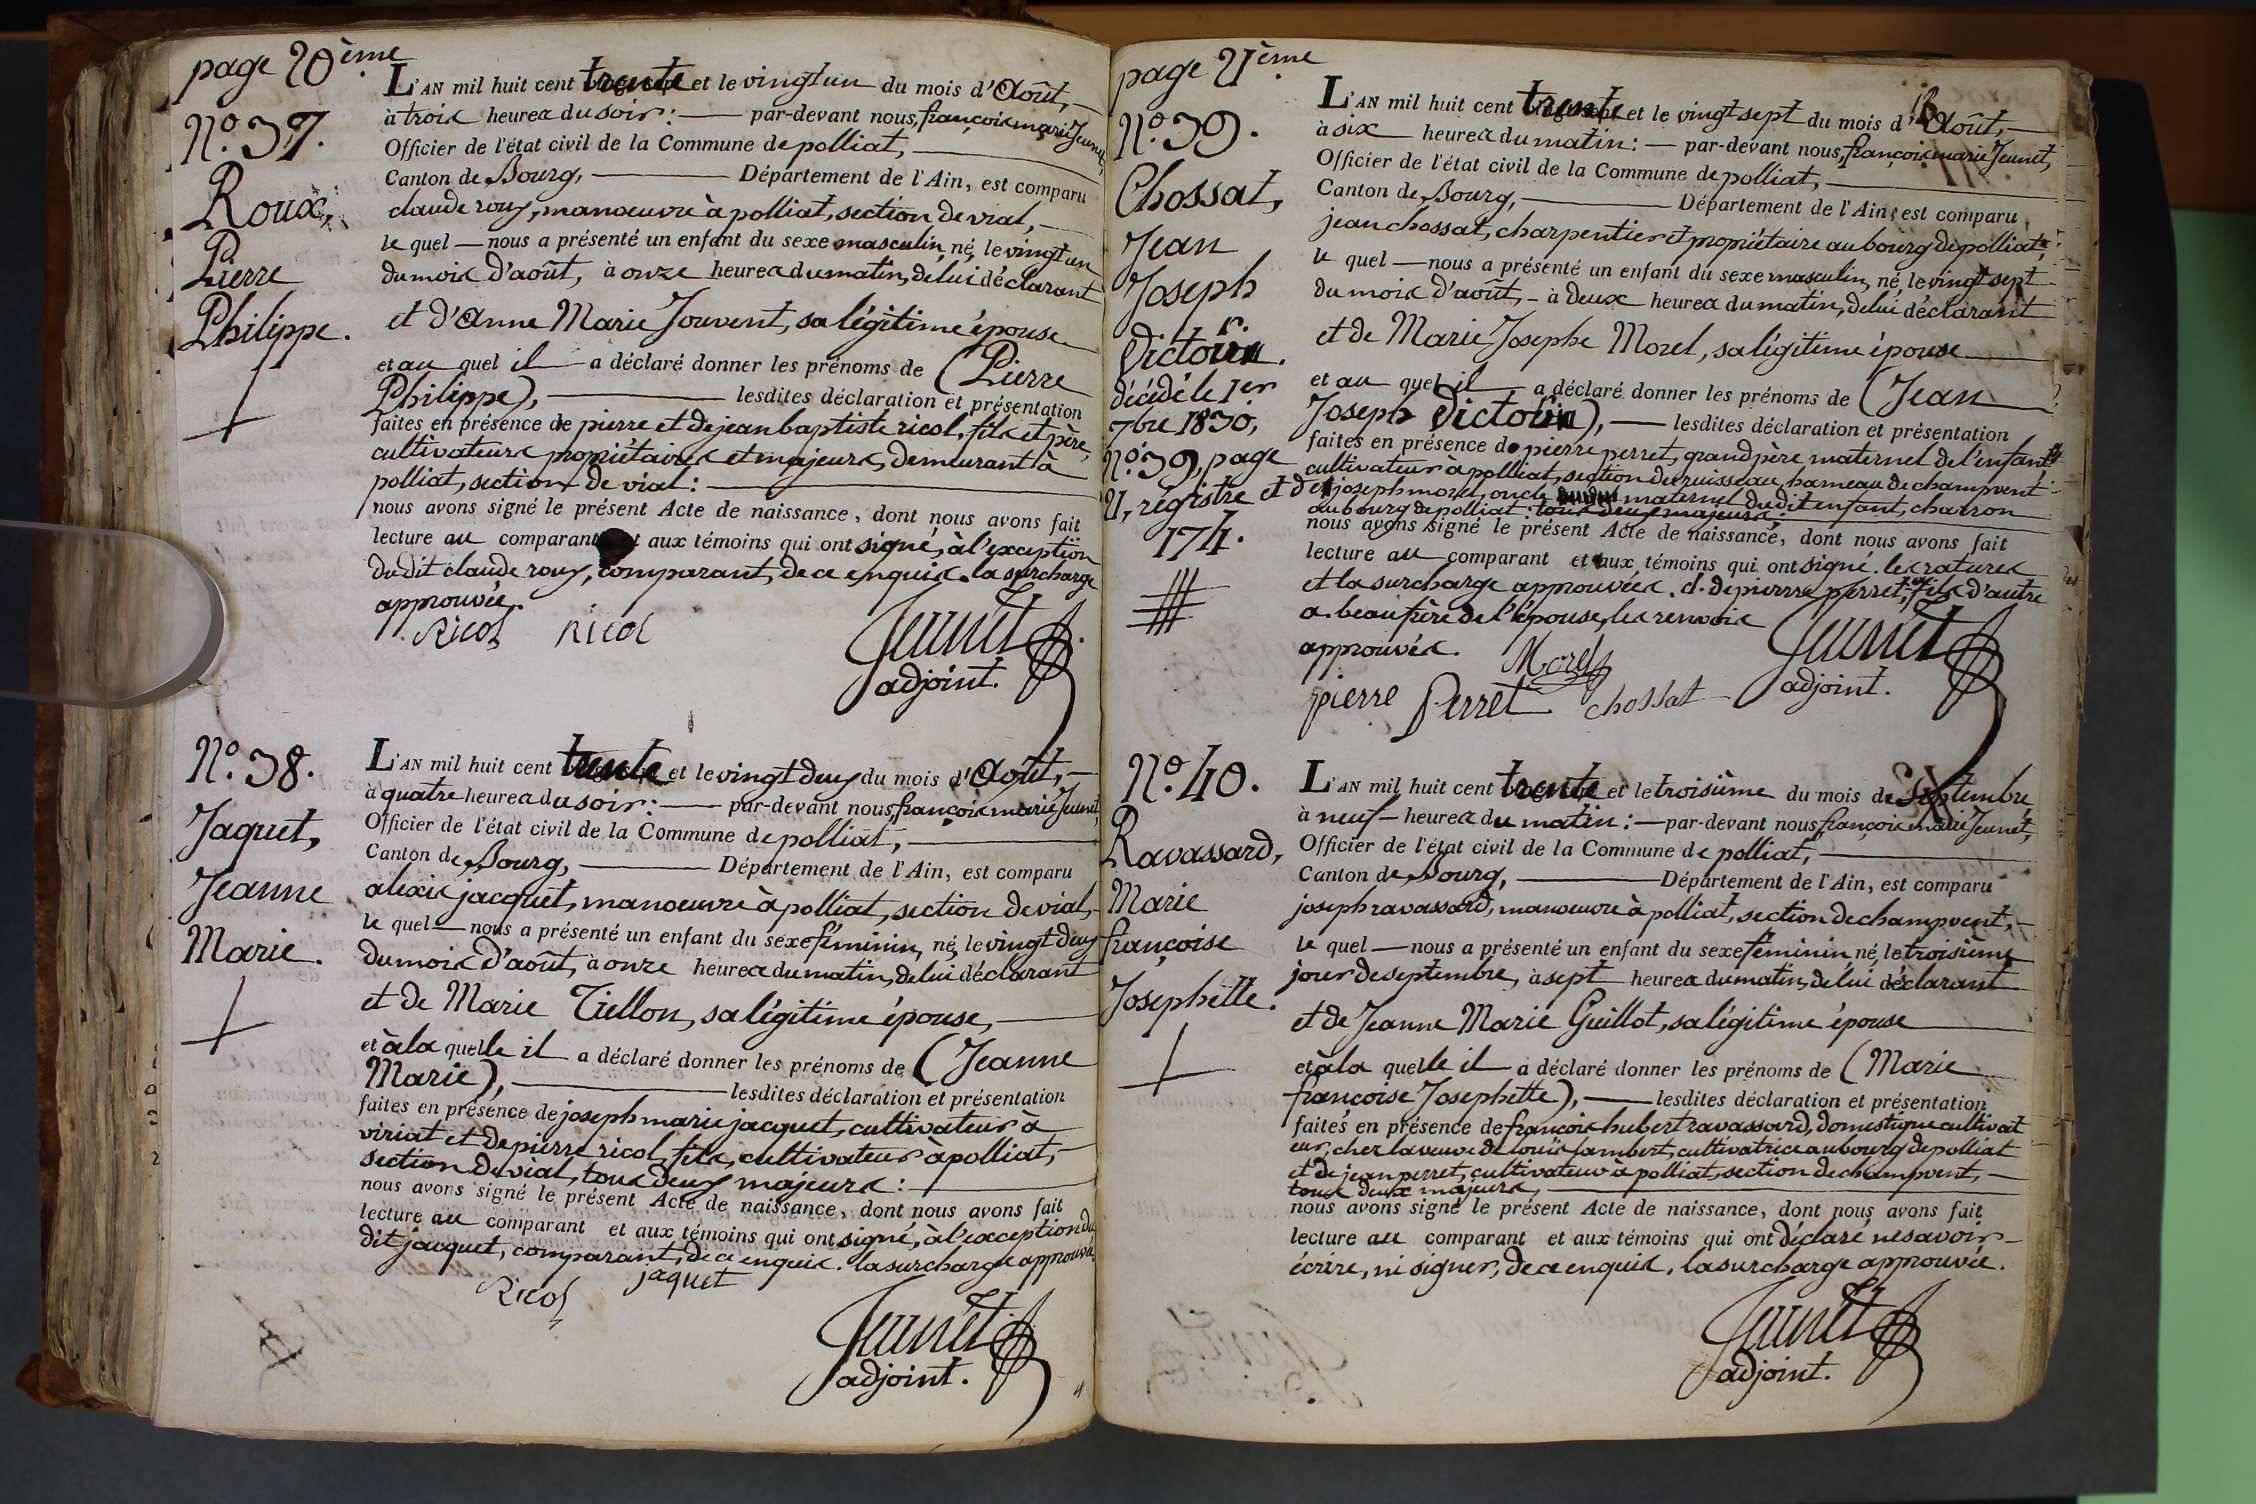 page 20ème
N.o 37.
Roux,
Pierre
Philippe.
L'AN mil huit cent trente et le vingt un du mois d'Août,
à trois heures du soir : par-devant nous, françois marie Jeunet,
Officier de l'état civil de la Commune de polliat,
Canton de Bourg, Département de l'Ain, est comparu
claude roux, manoeuvre à polliat, section de vial,
le quel nous a présenté un enfant du sexe masculin, né, le vingt un
du mois d'août, à onze heures du matin, de lui déclarant
et d'Anne Marie Jouvent, sa légitime épouse
et au quel il a déclaré donner les prénoms de (Pierre
Philippe), lesdites déclaration et présentation
faites en présence de pierre et de jean baptiste ricol, fils et père,
cultivateurs propriétaires et majeurs, demeurant à
polliat, section de vial :
nous avons signé le présent Acte de naissance, dont nous avons fait
lecture au comparant et aux témoins qui ont signé, à l'exception
du dit claude roux, comparant, de ce enquis. la surcharge
approuvée.
Ricol Ricol
Jeunet
adjoint.
N.o 38.
Jaquet,
Jeanne
Marie.
L'AN mil huit cent trente et le vingt deux du mois d'Août,
à quatre heures du soir : par-devant nous, françois marie Jeunet,
Officier de l'état civil de la Commune de polliat,
Canton de Bourg, Département de l'Ain, est comparu
alexis jacquet, manoeuvre à polliat, section de vial,
le quel nous a présenté un enfant du sexe féminin, né, le vingt deux
du mois d'août, à onze heures du matin, de lui déclarant
et de Marie Tiellon, sa légitime épouse,
et à la quelle il a déclaré donner les prénoms de (Jeanne
Marie), lesdites déclaration et présentation
faites en présence de joseph marie jacquet, cultivateur à
viriat et de pierre ricol, fils, cultivateur à polliat,
section de vial, tous deux majeurs :
nous avons signé le présent Acte de naissance, dont nous avons fait
lecture au comparant et aux témoins qui ont signé, à l'exception du
dit jacquet, comparant, de ce enquis. la surcharge approuvée.
Ricol jaquet
Jeunet
adjoint.
page 21ème
N.o 39.
Chossat,
Jean
Joseph
Victoir.
décédé le 1er
7bre 1830,
N.o 39, page
21, régistre
174.
L'AN mil huit cent trente et le vingt sept du mois d'Août,
à six heures du matin : par-devant nous, françois marie Jeunet,
Officier de l'état civil de la Commune de polliat,
Canton de Bourg, Département de l'Ain, est comparu
jean chossat, charpentier et propriétaire au bourg de polliat,
le quel nous a présenté un enfant du sexe masculin, né, le vingt sept
du mois d'août, à deux heures du matin, de lui déclarant
et de Marie Josephe Morel, sa légitime épouse
et au quel il a déclaré donner les prénoms de (Jean
Joseph Victoir), lesdites déclaration et présentation
faites en présence de pierre perret, grand père maternel de l'enfant
cultivateur à polliat, section du ruisseau, hameau de champvent
et de joseph morel, oncle maternel dudit enfant, charron
au bourg de polliat. tous deux majeurs :
nous avons signé le présent Acte de naissance, dont nous avons fait
lecture au comparant et aux témoins qui ont signé. les ratures
et la surcharge approuvées. d. de pierre perret, fils d'autre
a. beau frère de l'épouse, les renvois
approuvés.
Morel
Jeunet
adjoint.
pierre Perret chossat
N.o 40.
Ravassard,
Marie
françoise
Josephette.
L'AN mil huit cent trente et le troisième du mois de Septembre
à neuf heures du matin : par-devant nous, françois marie Jeunet,
Officier de l'état civil de la Commune de polliat,
Canton de Bourg, Département de l'Ain, est comparu
joseph ravassard, manoeuvre à polliat, section de champvent,
le quel nous a présenté un enfant du sexe féminin, né, le troisième
jour de septembre, à sept heures du matin, de lui déclarant
et de Jeanne Marie Guillot, sa légitime épouse
et à la quelle il a déclaré donner les prénoms de (Marie
françoise Josephette), lesdites déclaration et présentation
faites en présence de françois hubert ravassard, domestique cultivat
eur, chez la veuve de louis jambert, cultivatrice au bourg de polliat
et de jean perret, cultivateur à polliat, section de champvent,
tous deux majeurs,
nous avons signé le présent Acte de naissance, dont nous avons fait
lecture au comparant et aux témoins qui ont déclaré ne savoir
écrire, ni signer, de ce enquis, la surcharge approuvée.
Jeunet
adjoint.